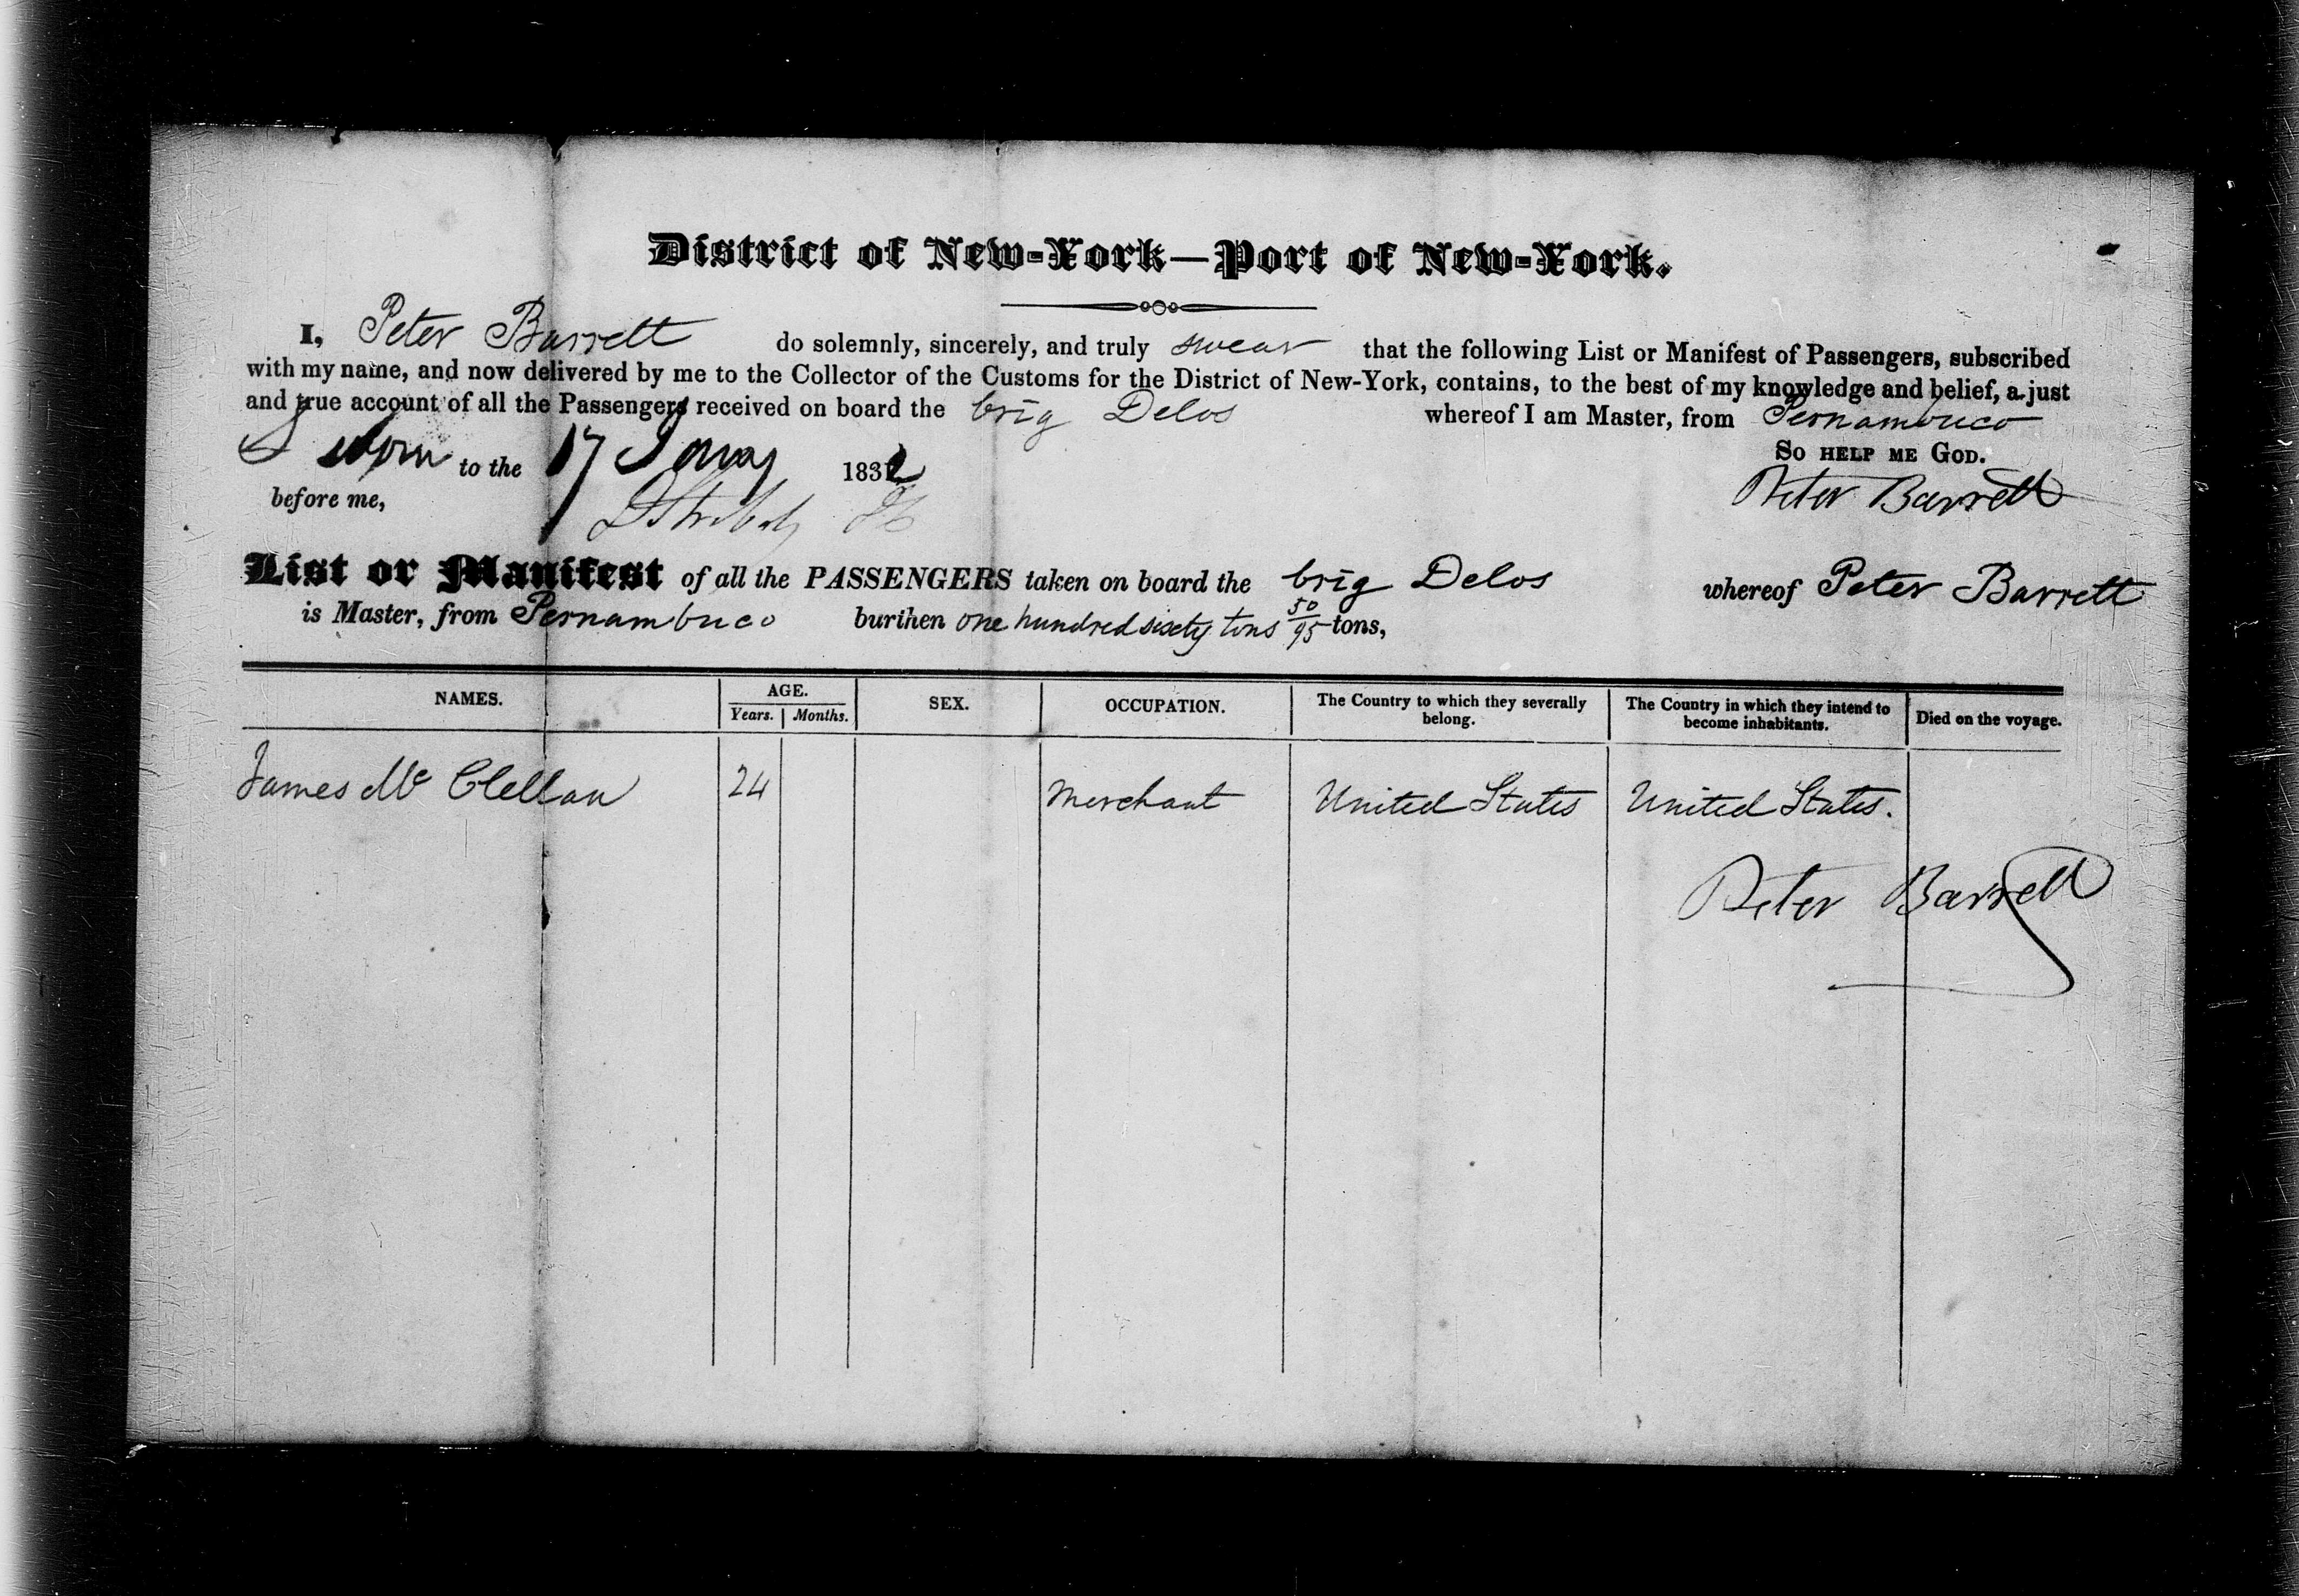 District of New-York—Port of New-York.
I, Peter Barrett do solemnly, sincerely, and truly swear that the following List or Manifest of Passengers, subscribed
with my name, and now delivered by me to the Collector of the Customs for the District of New-York, contains, to the best of my knowledge and belief, a just
and true account of all the Passengers received on board the brig Delos whereof I am Master, from Pernambuco
So help me God.
Sworn to the 17 Jany 1832
before me,
Peter Barrett
List or Manifest of all the PASSENGERS taken on board the brig Delos whereof Peter Barrett
is Master, from Pernambuco burthen one hundred sixty tons 50/95 tons,
NAMES. AGE. SEX. OCCUPATION. The Country to which they severally belong. The Country in which they intend to become inhabitants. Died on the voyage.
Years. Months.
James Mc Clellan 24 Merchant United States United States.
Peter Barrett